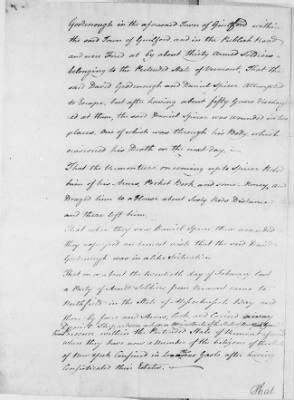 Goodenough in the aforesaid Town of Guilford within
the said Town of Guilford and in the Publick Road
and were Fired at by about thirty Armed Soldiers
belonging to the Pretended State of Vermont, That the
said David Goodenough and Daniel Spicer Attempted
to Escape, but after having about fifty Guns discharg
ed at them, the said Daniel Spicer was wounded in two
places, One of which was through his Body, which
occasioned his Death on the next day.
That the Vermonters on coming up to Spicer Robd
him of his Arms, Pocket Book and some Money, and
Draged him to a House about Sixty Rods Distance
and there left him.
That when they saw Daniel Spicer thus wounded
they expressed an earnest wish that the said David
Goodenough was in a like Situation
That on or about the twentieth day of February last
a Party of Armed Soldiers from Vermont came to
Northfield in the State of Massachusetts Bay and
there by force and Arms, took and Carried away
within the Pretended State of Vermont
where they have now a Number of the Citizens of the State
of New York Confined in Gaols after having
Confiscated their Estates.
That